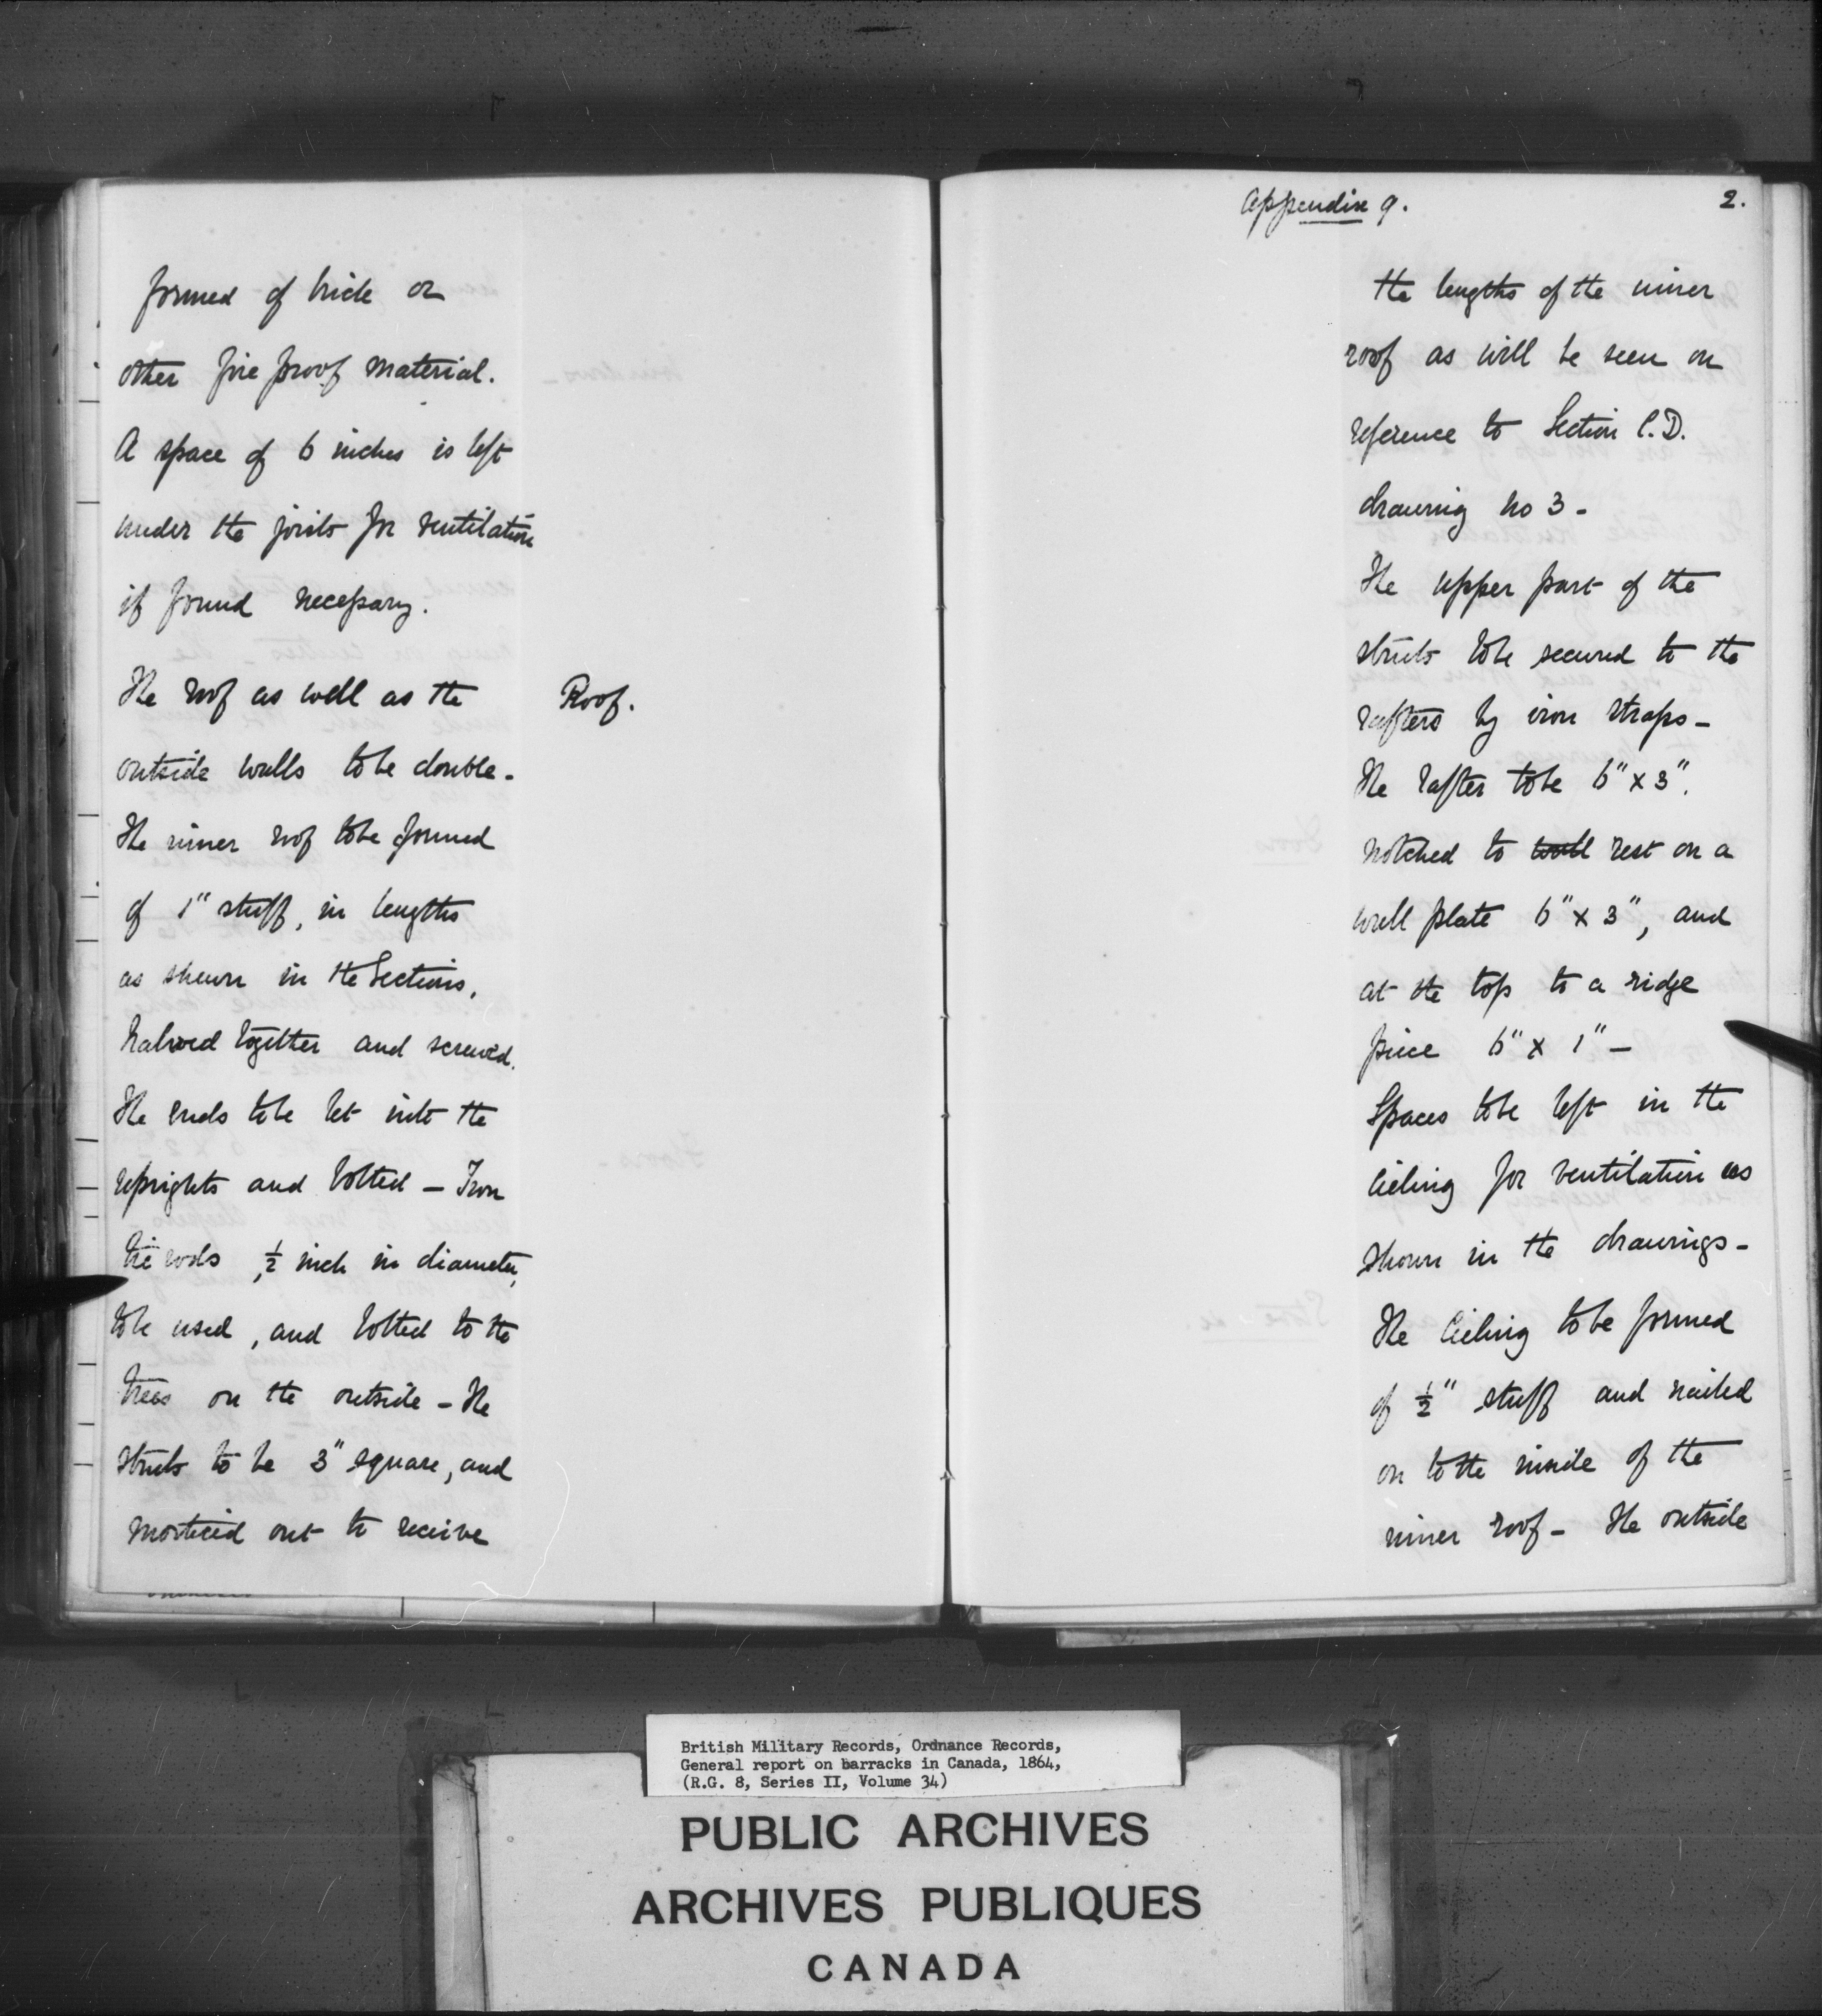 formed of brick or
other fire proof material.
A space of 6 inches is left
under the joists for ventilation
if found necessary.
The roof as well as the
Roof.
outside walls to be double.
The inner roof to be formed
of 1" stuff, in lengths
as shewn in the Sections,
halved together and screwed.
The ends to be let into the
uprights and bolted – Iron
tie rods, ½ inch in diameter,
to be used, and bolted to the
trees on the outside – The
struts to be 3" square, and
morticed out to receive
Appendix 9.
2.
the lengths of the inner
roof as will be seen on
reference to Section C.D.
drawing no 3 –
The upper part of the
struts to be secured to the
rafters by iron straps –
The rafter to be 6" x 3".
notched to wall rest on a
wall plate 6" x 3", and
at the top to a ridge
piece 6" x 1" –
Spaces to be left in the
Cieling for ventilation as
shown in the drawings –
The Cieling to be formed
of ½" stuff and nailed
on to the inside of the
inner roof – The outside
British Military Records, Ordnance Records,
General report on barracks in Canada, 1864,
(R.G. 8, Series II, Volume 34)
PUBLIC ARCHIVES
ARCHIVES PUBLIQUES
CANADA